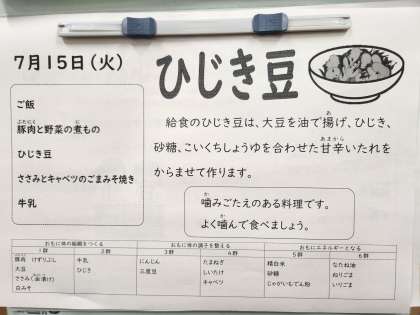 7月15日(火)
ひじき豆
ご飯
豚肉と野菜の煮もの
ひじき豆
ささみとキャベツのごまみそ焼き
牛乳
給食のひじき豆は、大豆を油で揚げ、ひじき、
砂糖、こいくちしょうゆを合わせた甘辛いたれを
からませて作ります。
噛みごたえのある料理です。
よく噛んで食べましょう。
おもに体の組織をつくる おもに体の調子を整える おもにエネルギーとなる
1群 2群 3群 4群 5群 6群
豚肉 けずりぶし 牛乳 にんじん たまねぎ 精白米 なたね油
大豆 ひじき 三度豆 しいたけ 砂糖 ねりごま
ささみ(油漬け) キャベツ じゃがいもでん粉 いりごま
白みそ